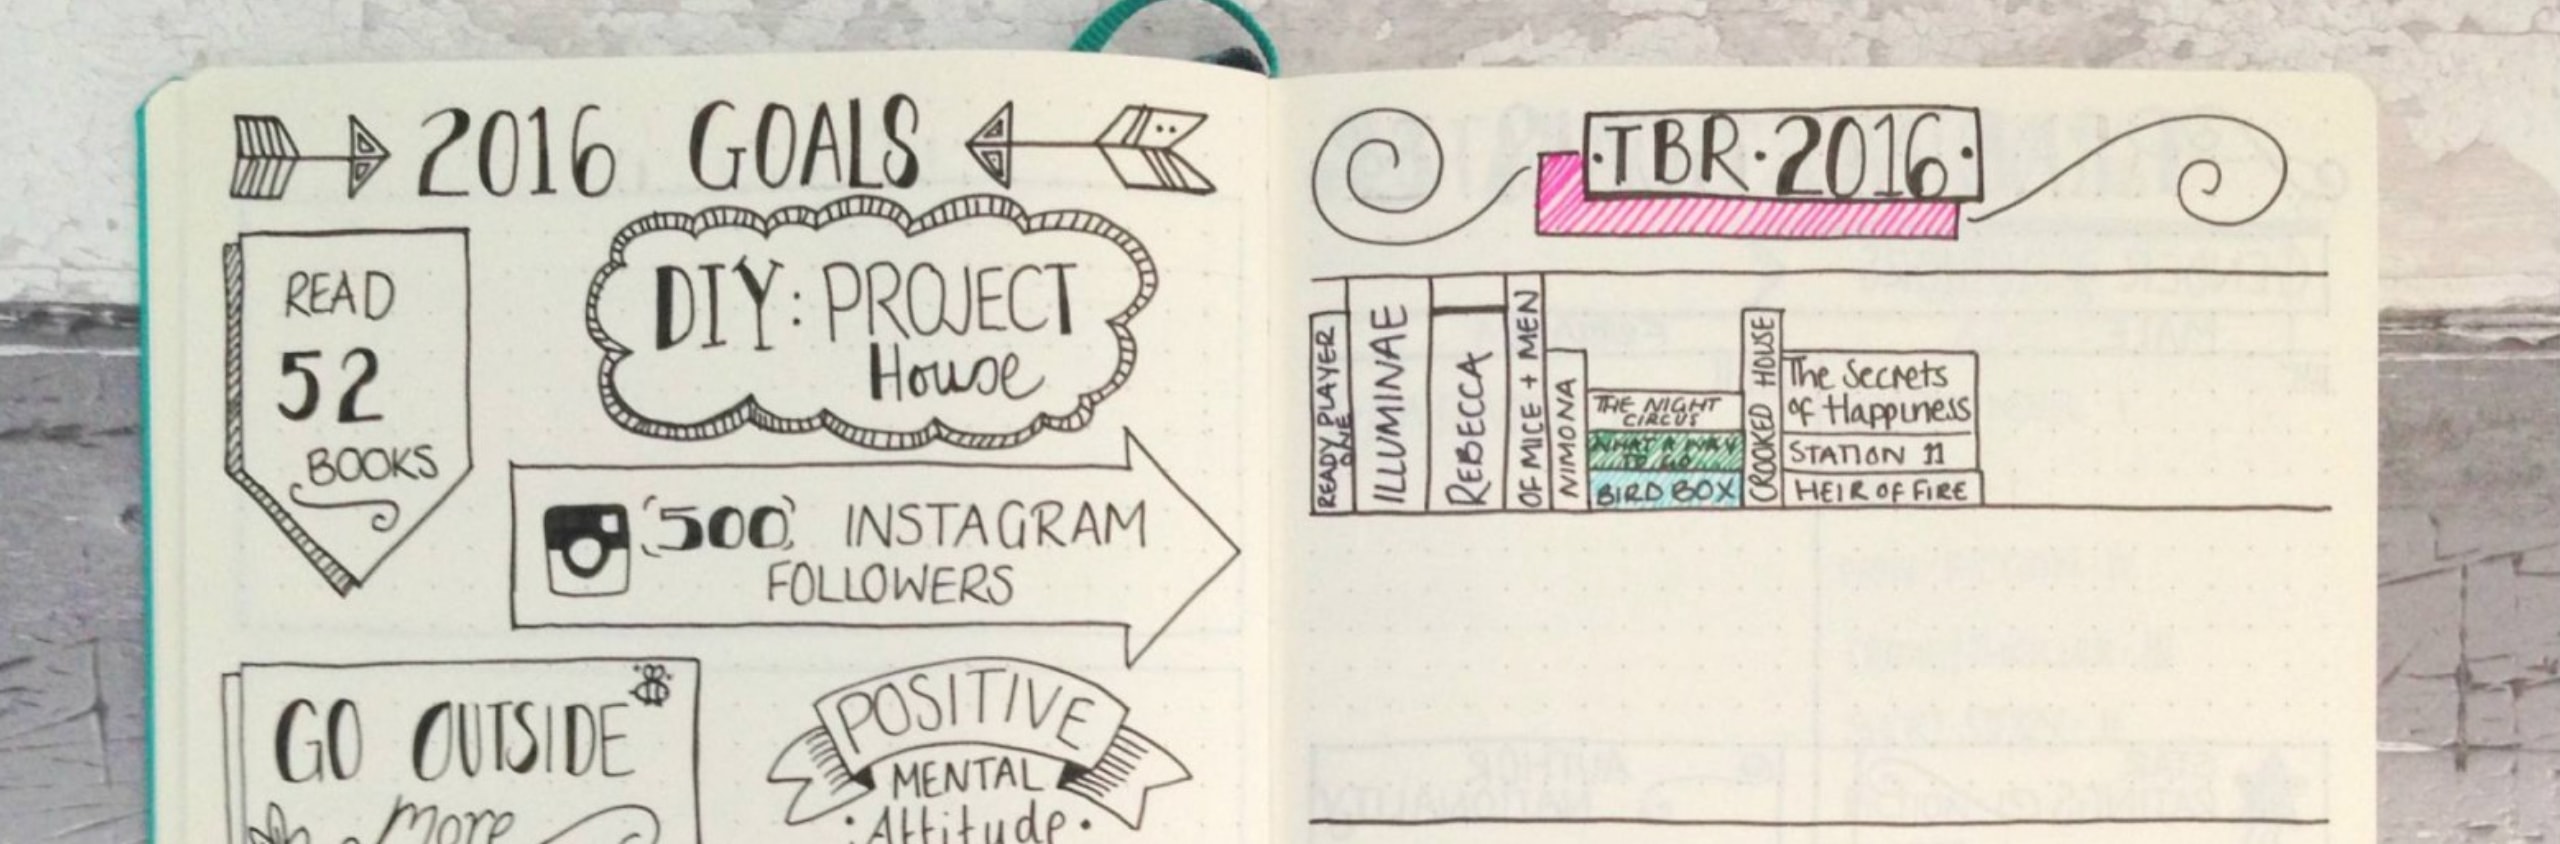 2016 GOALS
READ
52
BOOKS
DIY: PROJECT
House
500 INSTAGRAM
FOLLOWERS
GO OUTSIDE
more
POSITIVE
MENTAL
·Attitude·
·TBR·2016·
READY PLAYER
ONE
ILLUMINAE
REBECCA
OF MICE + MEN
NIMONA
THE NIGHT
CIRCUS
WHAT A WAY
TO GO
BIRD BOX
CROOKED HOUSE
The Secrets
of Happiness
STATION 11
HEIR OF FIRE